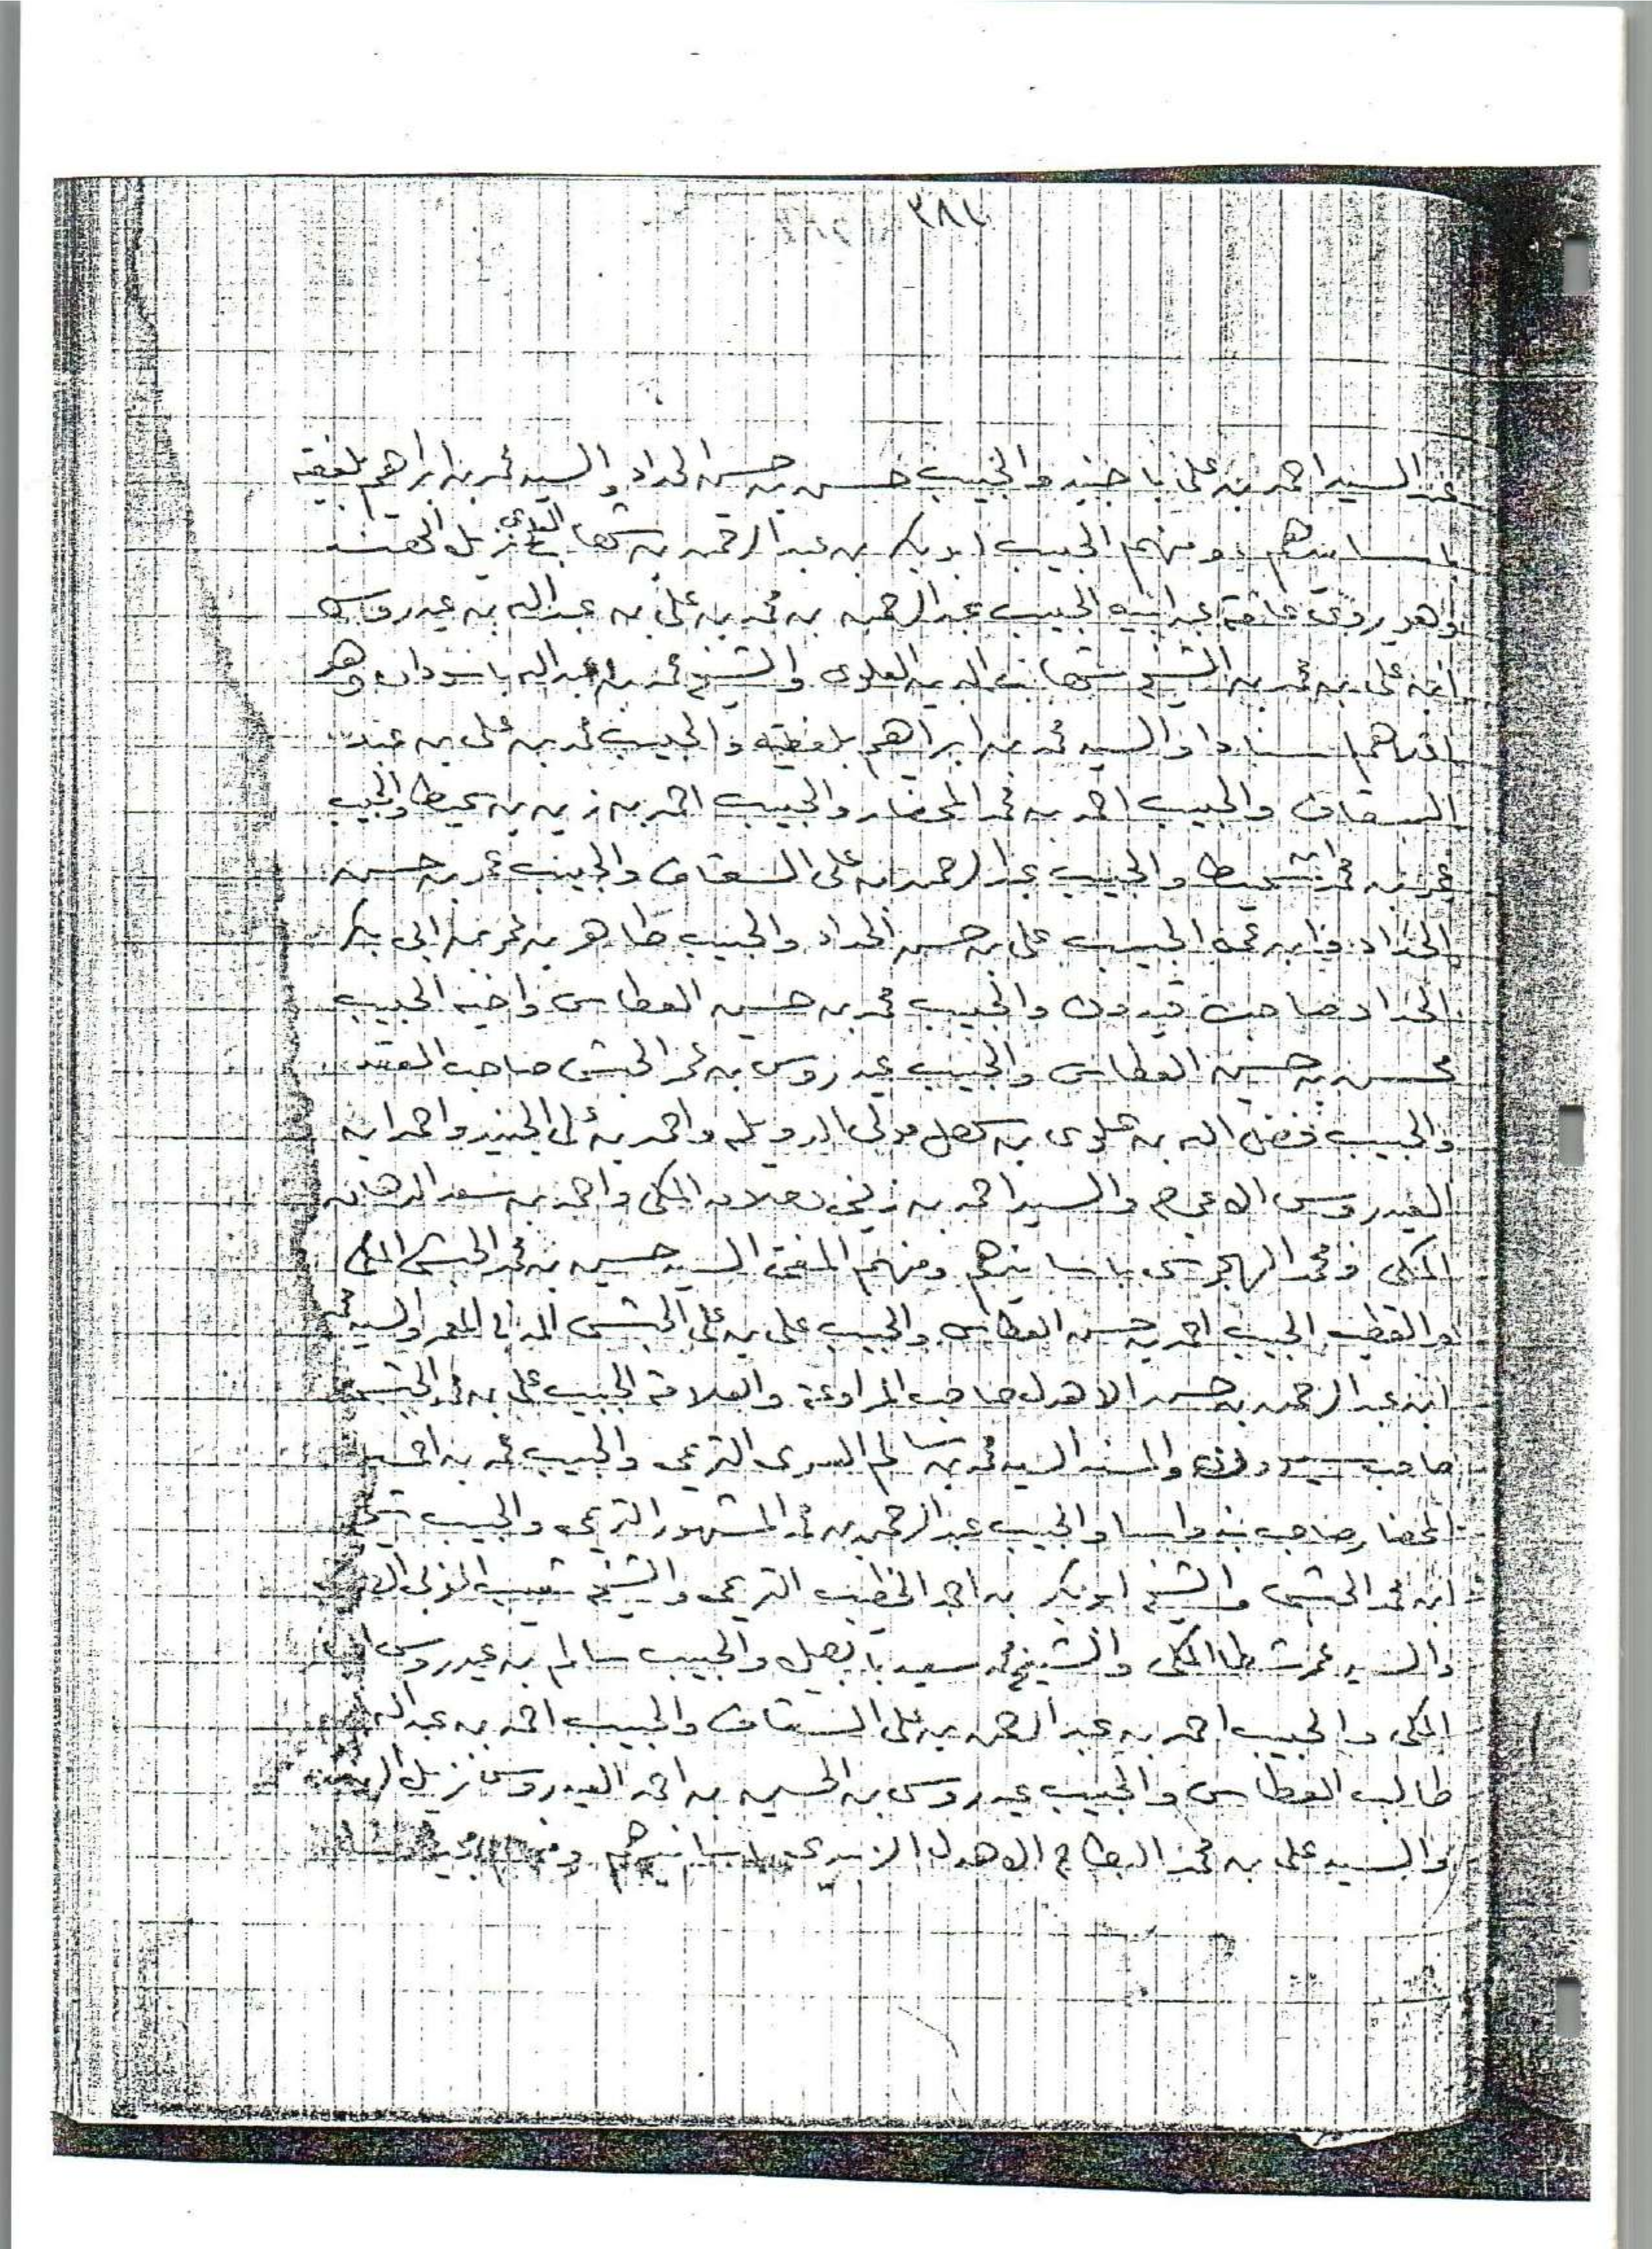 ٣٨٢
عن السيد احمد بن علي با جنيد والحبيب حسن بن حسين الحداد والسيد محمد بن ابراهيم بلفقيه
باسانيدهم ومنهم الحبيب ابو بكر بن عبد الرحمن بن شهاب العلوي نزيل الهند
وهو يروي عامة عن ابيه الحبيب عبد الرحمن بن محمد بن علي بن عبد الله بن عيدروس
ابن علي بن محمد بن الشيخ شهاب الدين العلوي والشيخ محمد بن عبد الله باسودان وهو
اسنادا والسيد محمد بن ابراهيم بلفقيه والحبيب محمد بن علي بن
السقاف والحبيب احمد بن محمد المحضار والحبيب احمد بن زين بن سميط والحبيب
عمر بن محمد بن سميط والحبيب عبد الرحمن بن علي السقاف والحبيب عمر بن حسن
الحداد وابن عمه الحبيب علي بن حسن الحداد والحبيب طاهر بن عمر بن ابي بكر
الحداد صاحب قيدون والحبيب محمد بن حسين العطاس واخيه الحبيب
محسن بن حسين العطاس والحبيب عيدروس بن عمر الحبشي صاحب
والحبيب فضل الله بن علوي بن سهل مولى الدويله واحمد بن علي الجنيد واحمد ابن
العيدروس والسيد احمد بن زيني دحلان المكي واحمد بن سعد الدهان
المكي ومحمد باسانيدهم ومنهم المفتي السيد حسين بن محمد الحبشي المكي
والقطب الحبيب احمد بن حسن العطاس والحبيب علي بن علي الحبشي المدني المعمر والسيد محمد
ابن عبد الرحمن بن حسن الاهدل صاحب المراوعة والعلامة الحبيب علي بن محمد الحبشي
صاحب سيوون والمسند السيد محمد بن سالم السري التريمي والحبيب محمد بن احمد
المحضار صاحب بندواسا والحبيب عبد الرحمن بن محمد المشهور التريمي والحبيب شيخ
ابن محمد الحبشي والشيخ ابو بكر بن احمد الخطيب التريمي والشيخ شعيب المغربي
والسيد عمر شطا المكي والشيخ محمد سعيد بابصيل والحبيب سالم بن عيدروس البار
المكي والحبيب احمد بن عبد الرحمن بن علي السقاف والحبيب احمد بن عبد الله
طالب العطاس والحبيب عيدروس بن الحسين بن احمد العيدروس نزيل
والسيد علي بن محمد البطاح الاهدل الزبيدي باسانيدهم